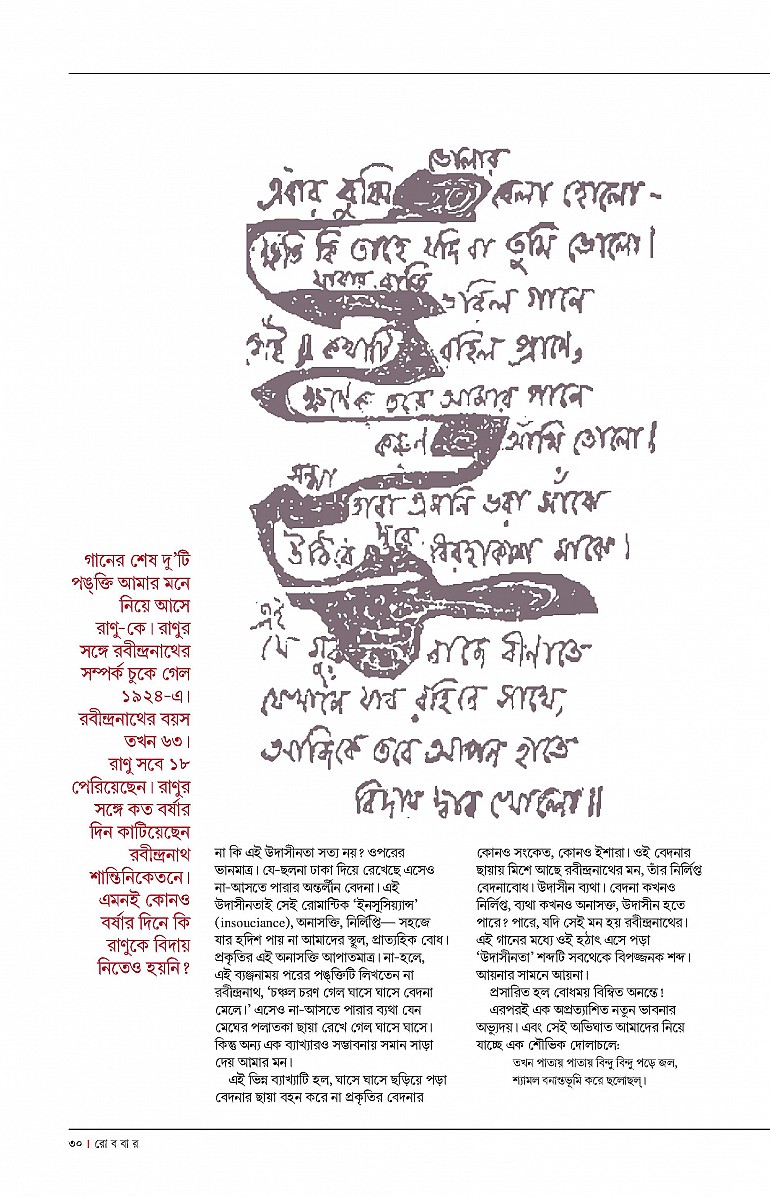 ভোলার
এবার বুঝি বেলা হোলো -
ক্ষতি কি তাহে যদি বা তুমি ভোলো।
যাবার রাতি
ভরিল গানে
সেই কথাটি রহিল প্রাণে,
ক্ষণেক তরে আমার পানে
করুণ আঁখি তোলো।
সন্ধ্যা
তারা এমনি ভরা সাঁঝে
উঠিবে দূরে বিরহাকাশ মাঝে।
এই
যে সুর বাজে বীণাতে
যেখানে যাব রহিবে সাথে,
আজিকে তবে আপন হাতে
বিদায় দ্বার খোলো॥
গানের শেষ দু'টি
পঙ্‌ক্তি আমার মনে
নিয়ে আসে
রাণু-কে। রাণুর
সঙ্গে রবীন্দ্রনাথের
সম্পর্ক চুকে গেল
১৯২৪-এ।
রবীন্দ্রনাথের বয়স
তখন ৬৩।
রাণু সবে ১৮
পেরিয়েছেন। রাণুর
সঙ্গে কত বর্ষার
দিন কাটিয়েছেন
রবীন্দ্রনাথ
শান্তিনিকেতনে।
এমনই কোনও
বর্ষার দিনে কি
রাণুকে বিদায়
নিতেও হয়নি?
না কি এই উদাসীনতা সত্য নয়? ওপরের
ভানমাত্র। যে-ছলনা ঢাকা দিয়ে রেখেছে এসেও
না-আসতে পারার অন্তর্লীন বেদনা। এই
উদাসীনতাই সেই রোমান্টিক 'ইনসুসিয়্যান্স'
(insouciance), অনাসক্তি, নির্লিপ্তি— সহজে
যার হদিশ পায় না আমাদের স্থূল, প্রাত্যহিক বোধ।
প্রকৃতির এই অনাসক্তি আপাতমাত্র। না-হলে,
এই ব্যঞ্জনাময় পরের পঙ্‌ক্তিটি লিখতেন না
রবীন্দ্রনাথ, 'চঞ্চল চরণ গেল ঘাসে ঘাসে বেদনা
মেলে।' এসেও না-আসতে পারার ব্যথা যেন
মেঘের পলাতকা ছায়া রেখে গেল ঘাসে ঘাসে।
কিন্তু অন্য এক ব্যাখ্যারও সম্ভাবনায় সমান সাড়া
দেয় আমার মন।
এই ভিন্ন ব্যাখ্যাটি হল, ঘাসে ঘাসে ছড়িয়ে পড়া
বেদনার ছায়া বহন করে না প্রকৃতির বেদনার
কোনও সংকেত, কোনও ইশারা। ওই বেদনার
ছায়ায় মিশে আছে রবীন্দ্রনাথের মন, তাঁর নির্লিপ্ত
বেদনাবোধ। উদাসীন ব্যথা। বেদনা কখনও
নির্লিপ্ত, ব্যথা কখনও অনাসক্ত, উদাসীন হতে
পারে? পারে, যদি সেই মন হয় রবীন্দ্রনাথের।
এই গানের মধ্যে ওই হঠাৎ এসে পড়া
'উদাসীনতা' শব্দটি সবথেকে বিপজ্জনক শব্দ।
আয়নার সামনে আয়না।
প্রসারিত হল বোধময় বিম্বিত অনন্তে!
এরপরই এক অপ্রত্যাশিত নতুন ভাবনার
অভ্যুদয়। এবং সেই অভিঘাত আমাদের নিয়ে
যাচ্ছে এক শৌভিক দোলাচলে:
তখন পাতায় পাতায় বিন্দু বিন্দু পড়ে জল,
শ্যামল বনান্তভূমি করে ছলোছল্।
৩০ । রো ব বা র